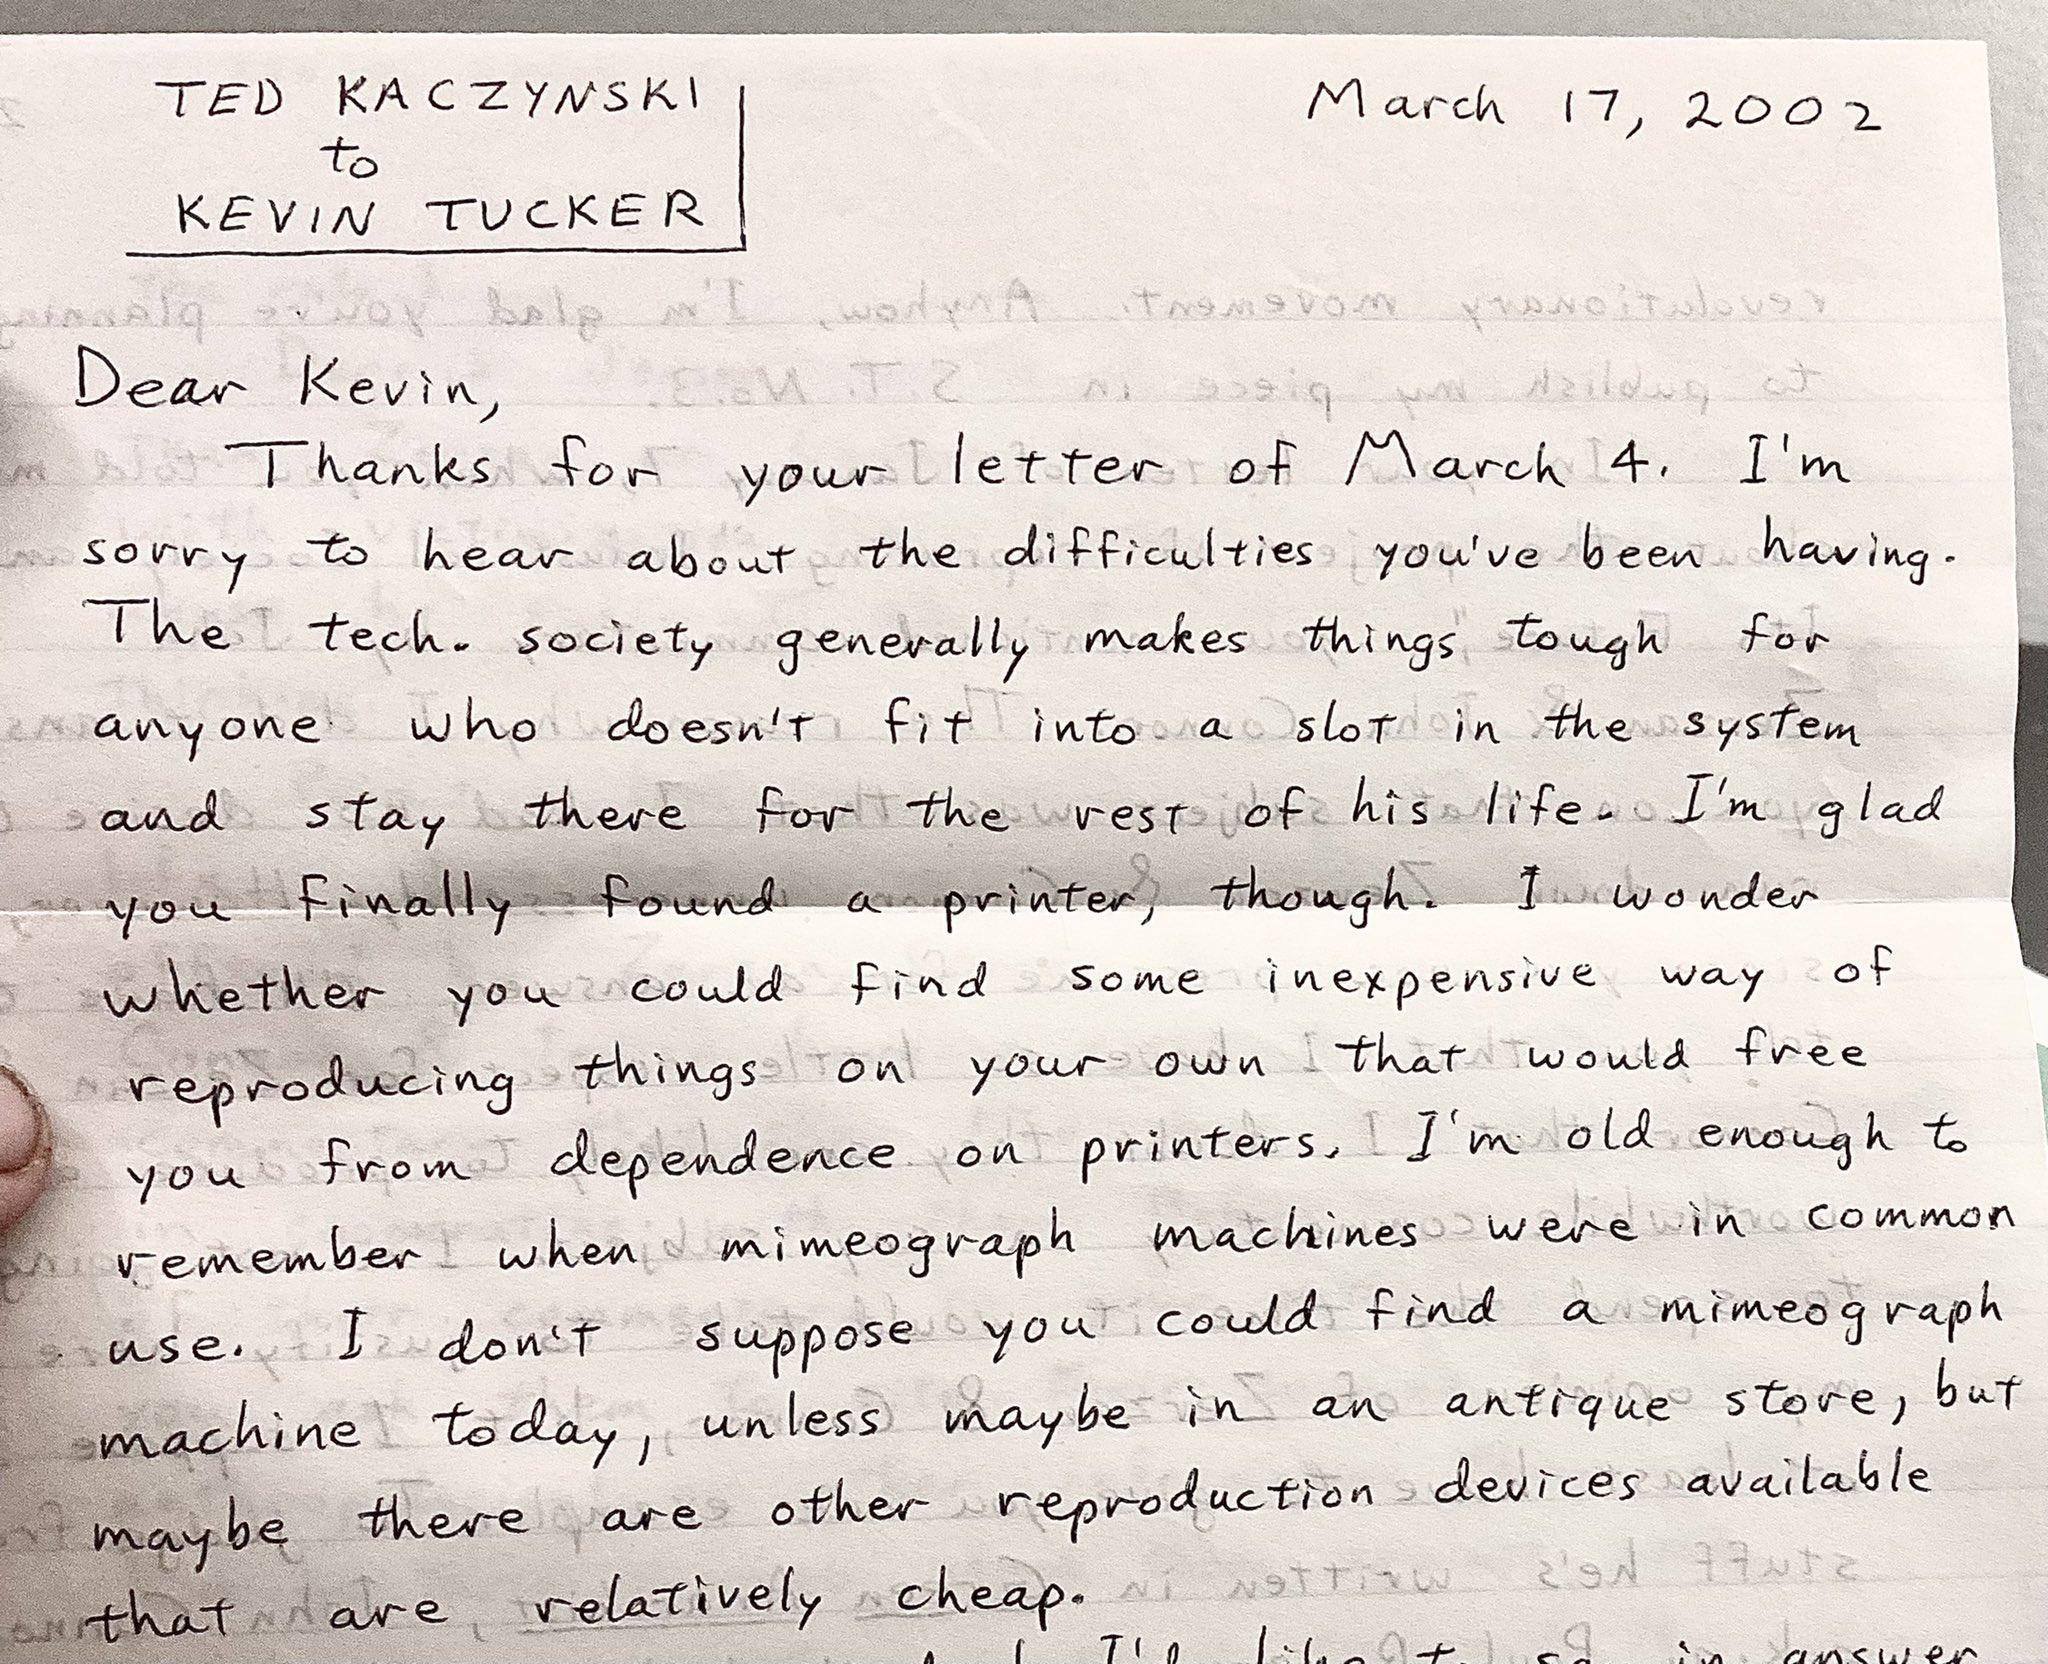 TED KACZYNSKI
to
KEVIN TUCKER
March 17, 2002
Dear Kevin,
Thanks for your letter of March 4. I'm
sorry to hear about the difficulties you've been having.
The tech. society generally makes things tough for
anyone who doesn't fit into a slot in the system
and stay there for the rest of his life. I'm glad
you finally found a printer, though. I wonder
whether you could find some inexpensive way of
reproducing things on your own that would free
you from dependence on printers. I'm old enough to
remember when mimeograph machines were in common
use. I don't suppose you could find a mimeograph
machine today, unless maybe in an antique store, but
maybe there are other reproduction devices available
that are relatively cheap.
I'd like to in answer